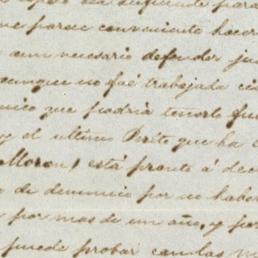 suficiente para
me parece conveniente hacer
necesario defender
aunque no fué trabajada
que podria tenerlo
y el ultimo Perito que ha
está pronto á
de denuncio por no haber
por mas de un año, y
puede probar con las